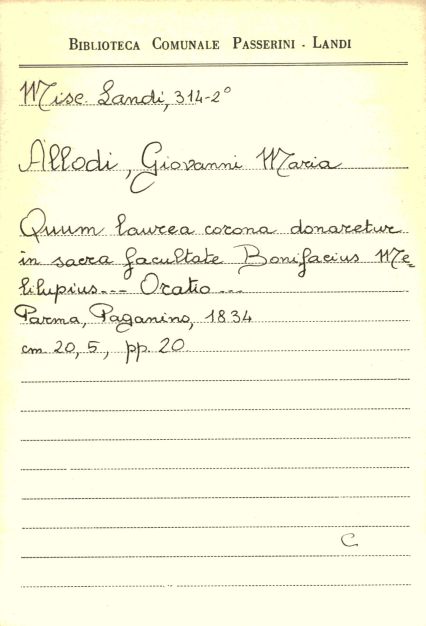 BIBLIOTECA COMUNALE PASSERINI - LANDI
Misc. Landi, 314-2°
Allodi, Giovanni Maria
Quum laurea corona donaretur
in sacra facultate Bonifacius Me=
lilupius--- Oratio ---
Parma, Paganino, 1834
cm. 20,5, pp. 20
C